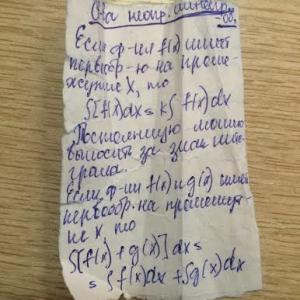 Св-ва неопр. интегр-
ов.
Если ф-ия f(x) имеет
первообр-ю на проме-
жутке X, то
∫[f(x)dx = k∫ f(x)dx
Постоянную можно
выносить за знак инте-
грала.
Если ф-ии f(x) и g(x) имеют
первообр. на промежут-
ке X то
∫[f(x) + g(x)] dx =
= ∫f(x)dx + ∫g(x)dx